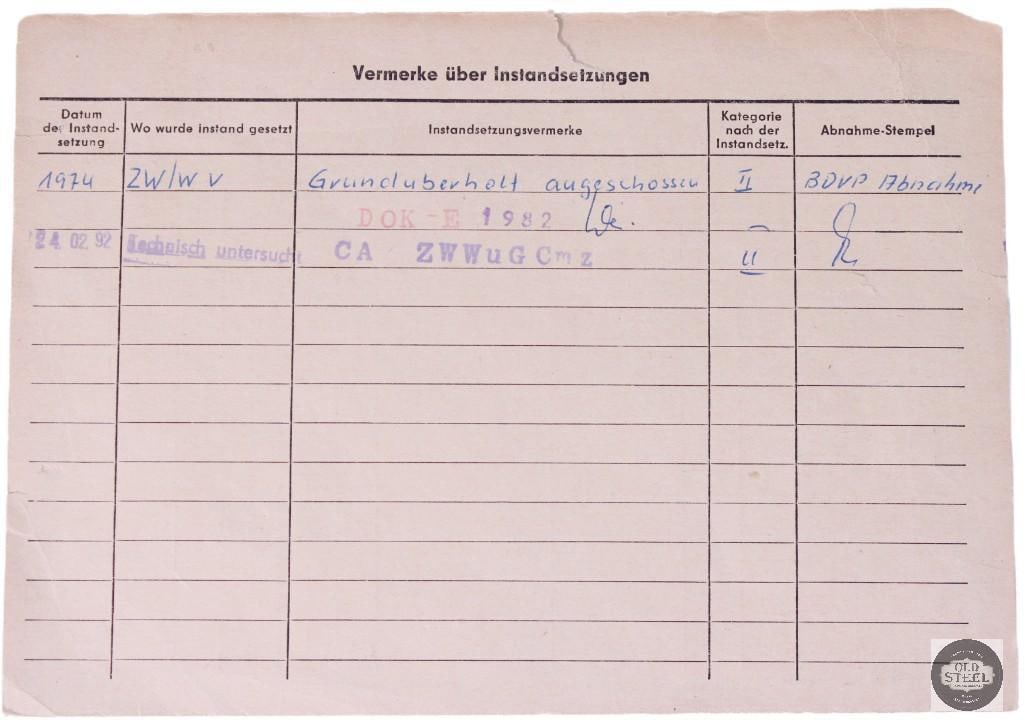 Vermerke über Instandsetzungen
Datum der Instand-setzung
Wo wurde instand gesetzt
Instandsetzungsvermerke
Kategorie nach der Instandsetz.
Abnahme-Stempel
1974 ZW/W V Grundüberholt angeschossen II BDVP Abnahme
DOK-E 1982
24. 02. 92 Technisch untersucht CA ZWWuG Cmz II
OLD
STEEL